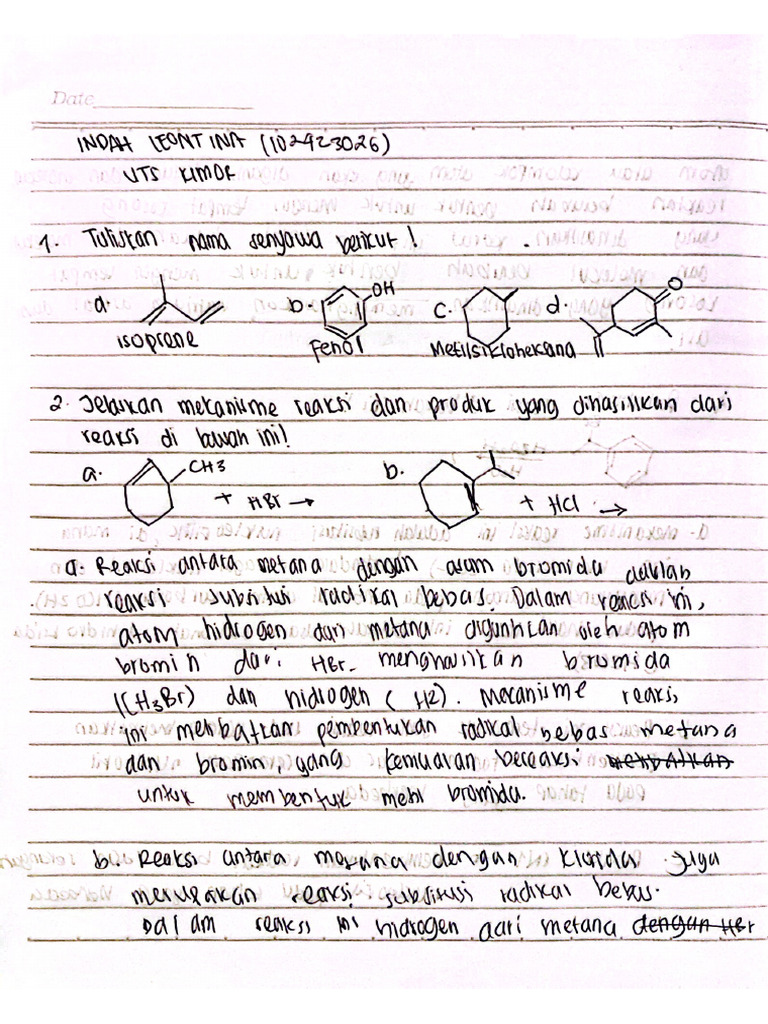 Date
INDAH LEONTINA (102923026)
UTS KIMOR
1. Tuliskan nama senyawa berikut!
a. b. OH c. d. O
isoprene Fenol Metilsiklohekana
2. Jelaskan mekanisme reaksi dan produk yang dihasilkan dari
reaksi di bawah ini!
a. CH3 + HBr → b. + HCl →
a. Reaksi antara metana dengan asam bromida adalah
reaksi subsitusi radikal bebas. Dalam reaksi ini,
atom hidrogen dari metana digantikan oleh atom
bromin dari HBr menghasilkan bromida
(CH3Br) dan hidrogen (H2). Mekanisme reaksi
ini melibatkan pembentukan radikal bebas metana
dan bromin, yang kemudian bereaksi
untuk membentuk metil bromida.
b. Reaksi antara metana dengan klorida juga
merupakan reaksi substitusi radikal bebas.
Dalam reaksi ini hidrogen dari metana dengan HBr